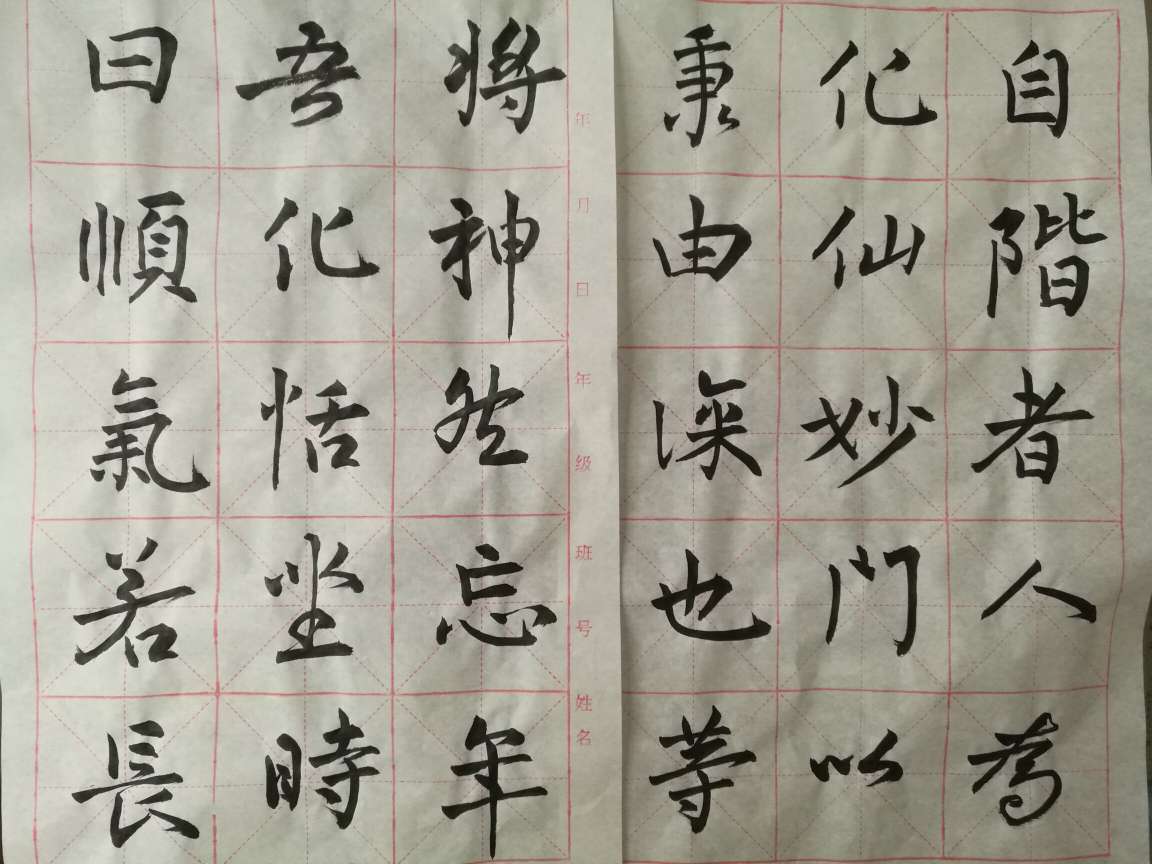 自階者人為
化仙妙門以
秉由深也等
年 月 日 年级 班号 姓名
將神然忘年
吾化恬坐時
曰順氣若長